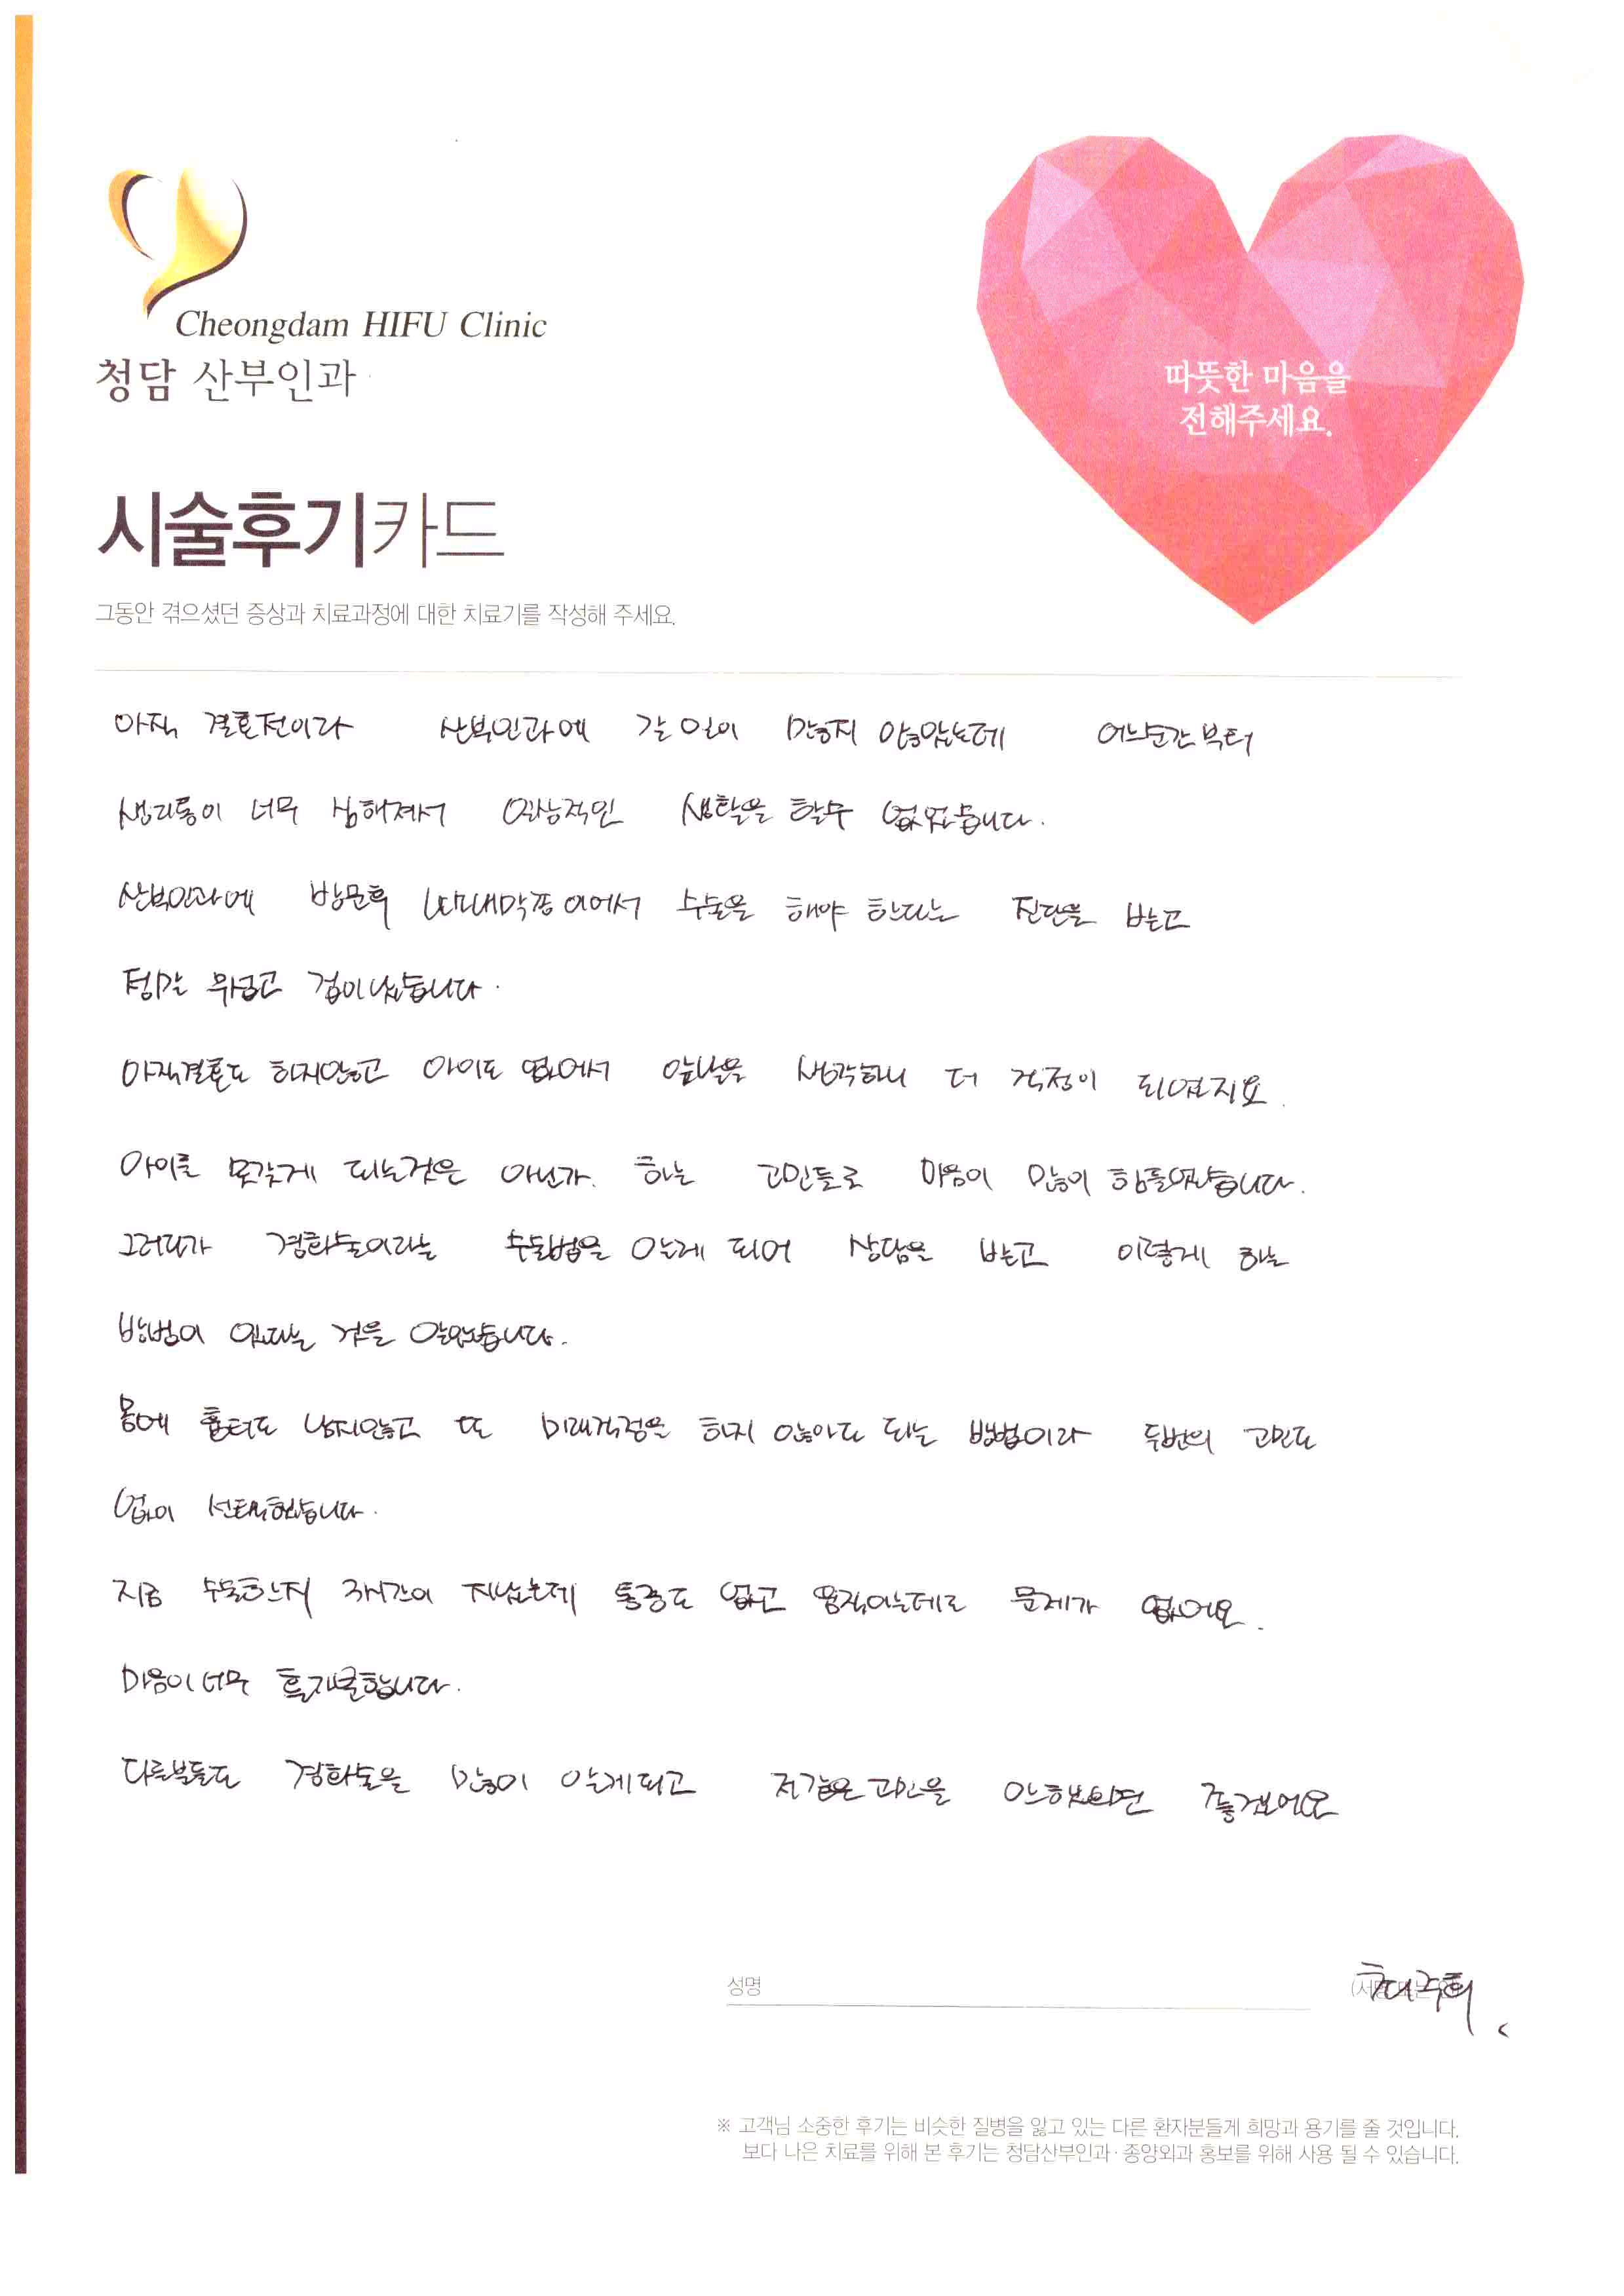 Cheongdam HIFU Clinic
청담 산부인과
따뜻한 마음을
전해주세요.
시술후기카드
그동안 겪으셨던 증상과 치료과정에 대한 치료기를 작성해 주세요.
아직 결혼전이라 산부인과에 갈 일이 많지 않았는데 어느순간부터
생리통이 너무 심해져서 일상적인 생활을 할수 없었습니다.
산부인과에 방문후 난막증이어서 수술을 해야 한다는 진단을 받고
정말 무섭고 겁이났습니다.
아직결혼도 하지않고 아이도 없어서 앞날을 생각하니 더 걱정이 되었지요.
아이를 못갖게 되는것은 아닌가. 하는 고민들로 마음이 많이 힘들었습니다.
그러다가 경화술이라는 수술법을 알게 되어 상담을 받고 이렇게 하는
방법이 있다는 것을 알았습니다.
몸에 흉터도 남지않고 또 미래걱정을 하지 않아도 되는 방법이라 두번의 고민도
없이 선택했습니다.
지금 수술한지 3시간이 지났는데 통증도 없고 움직이는데도 문제가 없어요.
마음이 너무 홀가분합니다.
다른분들도 경화술을 많이 알게되고 저같은 고민을 안했으면 좋겠어요
성명
※ 고객님 소중한 후기는 비슷한 질병을 앓고 있는 다른 환자분들게 희망과 용기를 줄 것입니다.
보다 나은 치료를 위해 본 후기는 청담산부인과·종양외과 홍보를 위해 사용 될 수 있습니다.